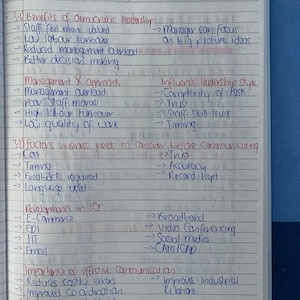 3.1 Benefits of democratic leadership
→ Staff feel more valued → Manager can focus
→ Low labour turnover on big picture ideas
→ Reduced management overload
→ Better decision making
Management X approach Influences leadership style
→ Management overload → Complexity of task
→ Poor staff morale → Trust
→ High labour turnover → Staff skill levels
→ Low quality of work → Timing
Factors business needs to consider before communicating
→ Cost → Trust
→ Timing → Accuracy
→ Feedback required → Record kept
→ Language used
Developments in ICT
→ E-Commerce → Broadband
→ EDI → Video Conferencing
→ JIT → Social media
→ Email → CAM/CAD
Importance of effective communication
→ Reduces costly errors → Improves Industrial
Improved co-ordination Relations